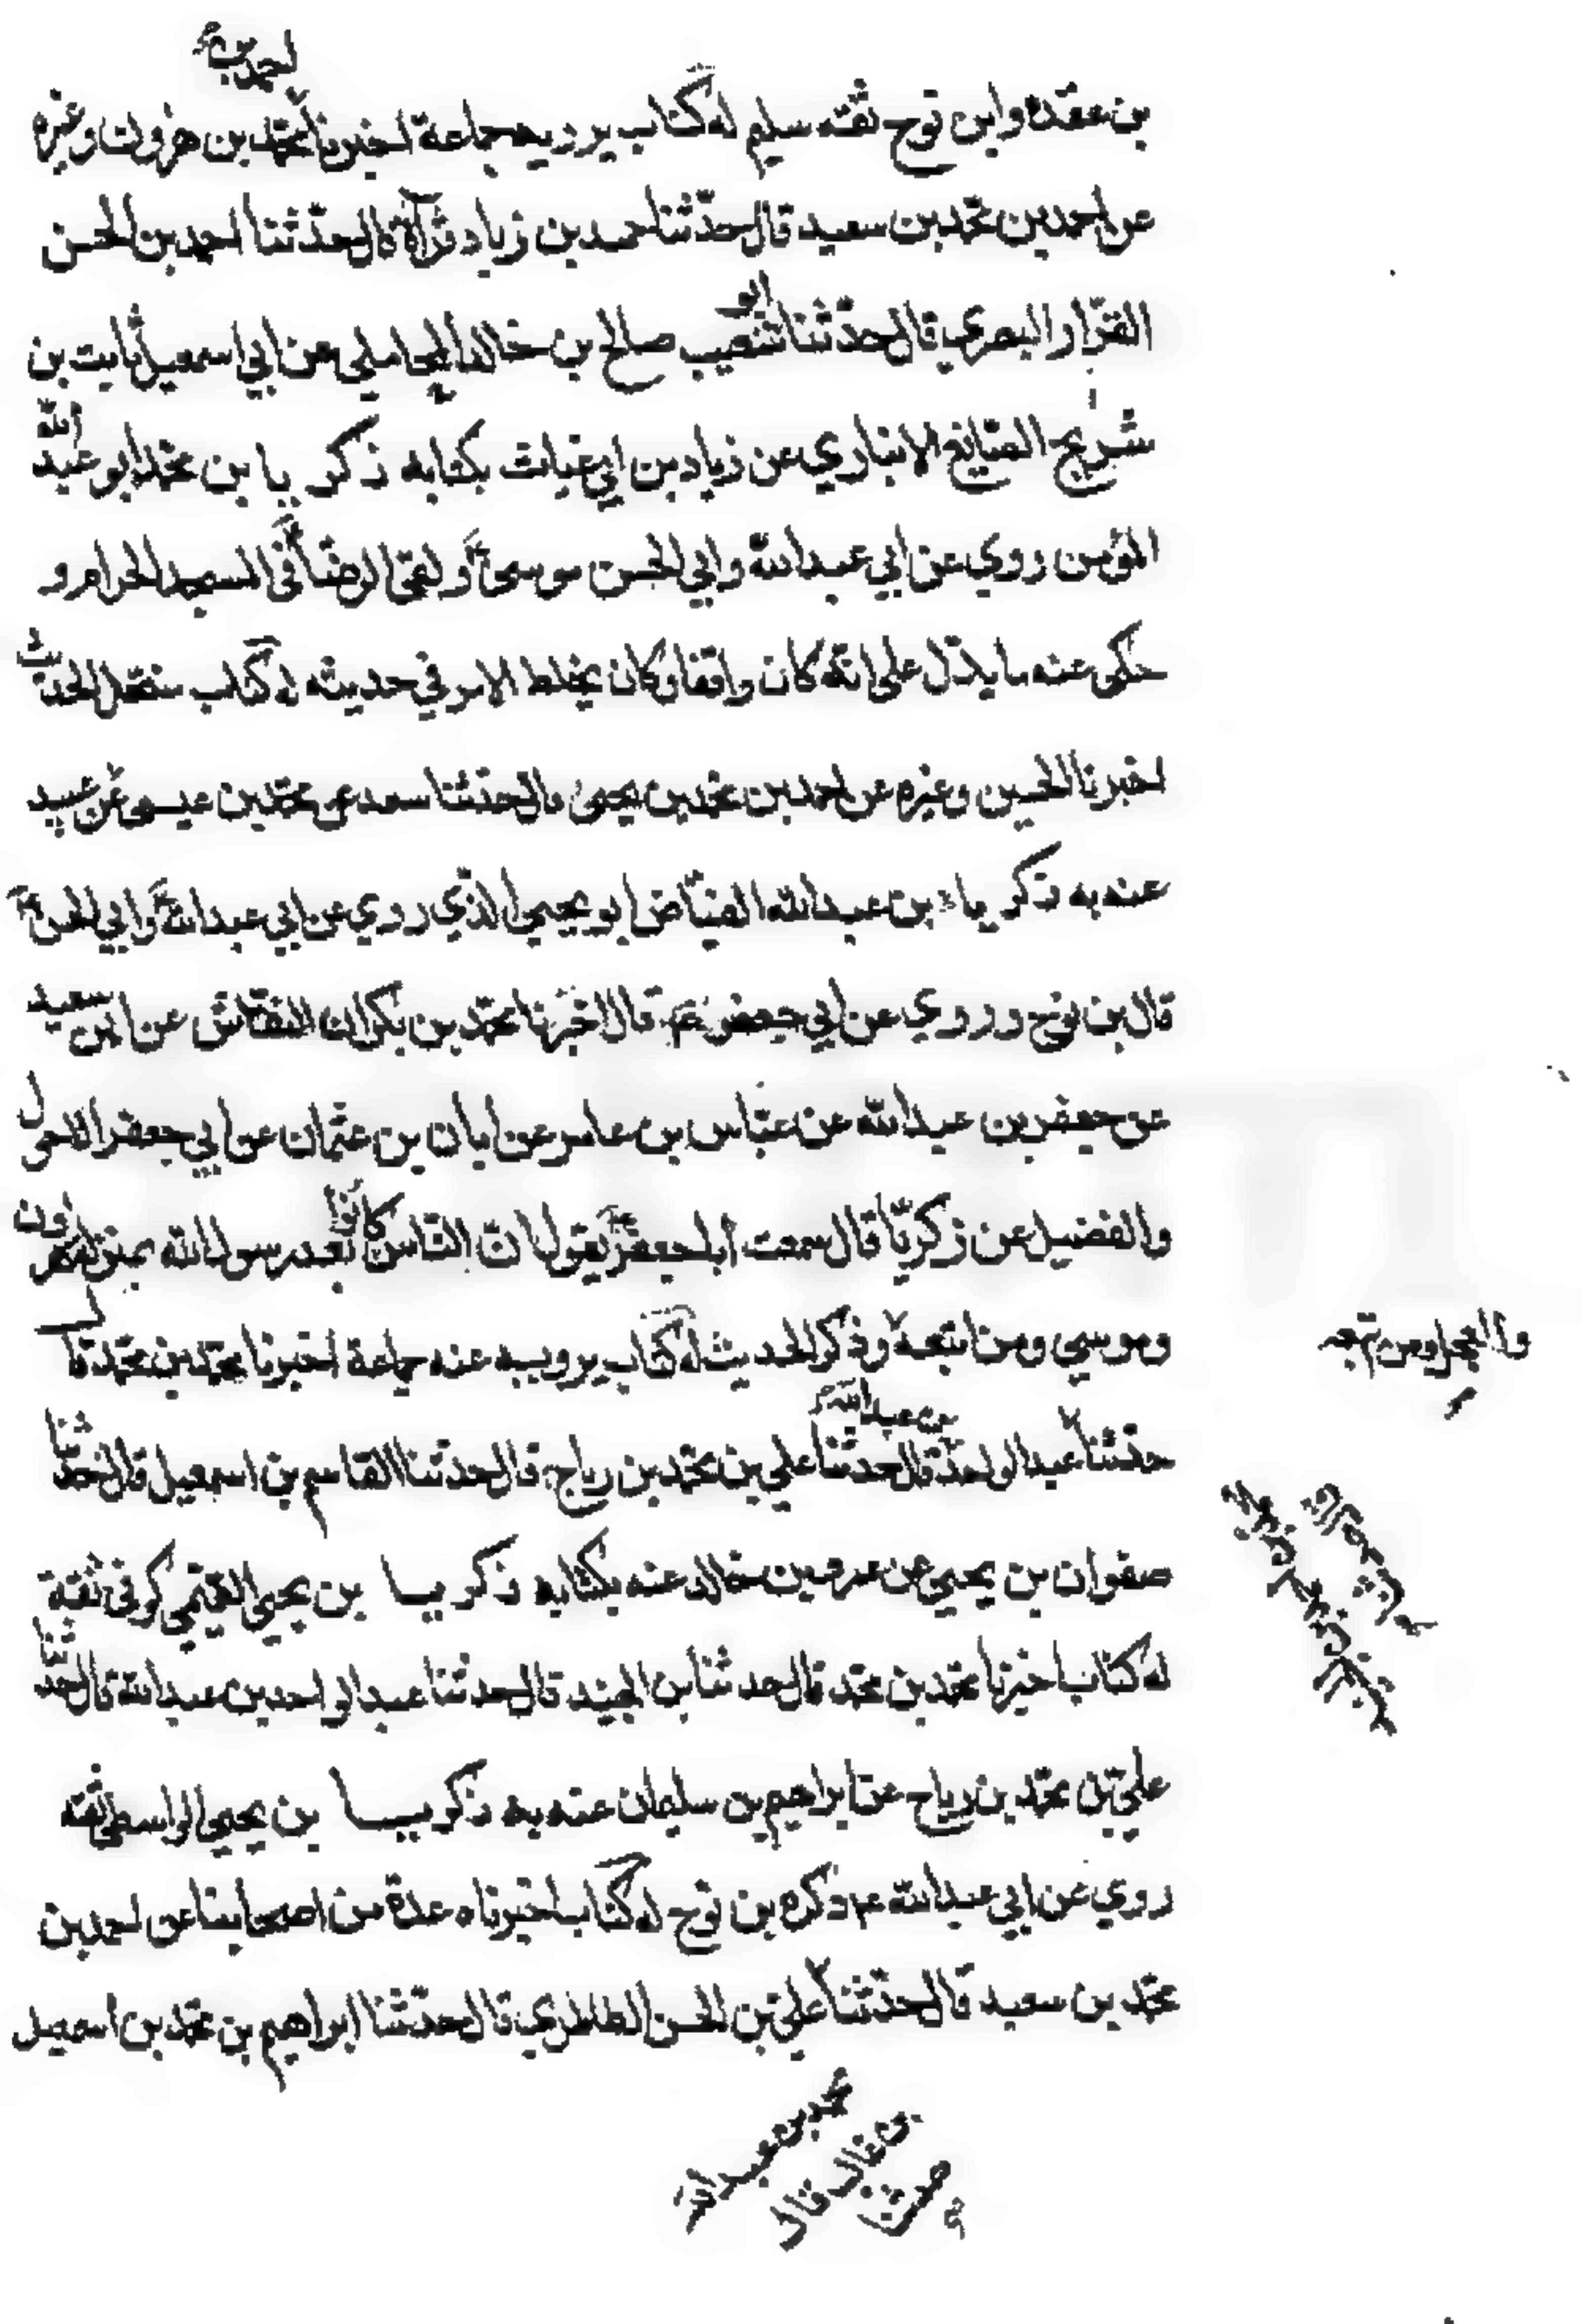 احمد بن
بن عقدة وابن نوح ثقة سليم له كتاب يرويه جماعة اخبرنا محمد بن هرون وغيره
عن احمد بن محمد بن سعيد قال حدّثنا حميد بن زياد قرأة قال حدّثنا احمد بن الحسن
القزّاز البصري قال حدّثنا ابو شعيب صالح بن خالد المحاملي عن ابي اسمعيل ثابت بن
شريح الصّايغ الانباري عن زياد بن ابي غياث بكتابه زكريا بن محمد ابو عبد الله
المؤمن روي عن ابي عبد الله وابي الحسن موسى ولقى الرضا في المسجد الحرام و
حكى عنه ما يدلّ على انّه كان واقفا وكان يختلط الامر في حديثه له كتاب منتحل الحديث
اخبرنا الحسين وغيره عن احمد بن محمد بن يحيى قال حدثنا سعد عن محمد بن عيسى بن عبيد
عنه به زكرياء بن عبد الله الفيّاض ابو يحيى الذي روي عن ابي عبد الله وابي الحسن
قال بن نوح وروي عن ابي جعفر ع قال اخبرنا محمّد بن بكران النقّاش عن ابن سعيد
عن جعفر بن عبد الله عن عبّاس بن عامر عن ابان بن عثمان عن ابي جعفر الاحول
والفضيل عن زكريّا قال سمعت ابا جعفر يقول انّ النّاس كانوا بعد رسول الله بمنزلة هرون
وموسي ومن اتبعه وذكر الحديث له كتاب يرويه عنه جماعة اخبرنا محمد بن محمد قال
والعجل ومن تبعه
حدثنا عبد الواحد بن عبد الله قال حدثنا علي بن محمد بن رياح قال حدثنا القاسم بن اسمعيل قال حدّثنا
صفوان بن يحيى عن عمرو بن خالد عنه بكتابه زكريا بن يحيى التميمي كوفي ثقة
له كتاب اخبرنا محمد بن محمد قال حدثنا بن الجنيد قال حدثنا عبد الواحد بن عبد الله قال حدّثنا
عليّ بن محمد بن رياح عن ابراهيم بن سليمان عنه به زكريا بن يحيى الواسطي ثقة
روي عن ابي عبد الله ع ذكره بن نوح له كتاب اخبرناه عدة من اصحابنا عن احمد بن
محمّد بن سعيد قال حدّثنا عليّ بن الحسن الطاطري قال حدّثنا ابراهيم بن محمد بن اسمعيل
محمد بن عبد الله
بن غالب قال